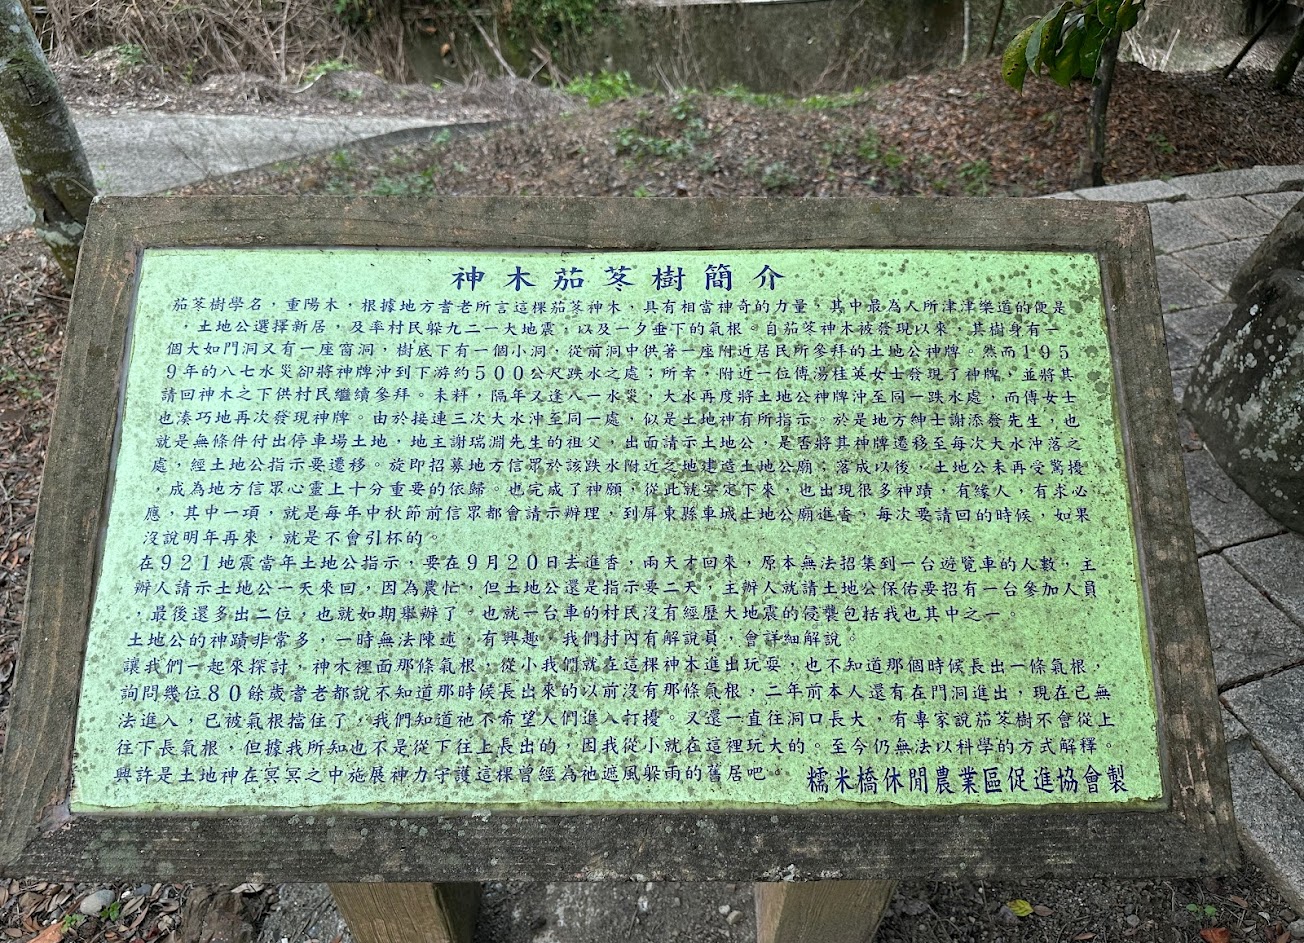 神木茄苳樹簡介
茄苳樹學名，重陽木，根據地方耆老所言這棵茄苳神木，具有相當神奇的力量，其中最為人所津津樂道的便是
，土地公選擇新居，及率村民躲九二一大地震，以及一夕垂下的氣根。自茄苳神木被發現以來，其樹身有一
個大如門洞又有一座窗洞，樹底下有一個小洞，從前洞中供著一座附近居民所參拜的土地公神牌。然而195
9年的八七水災卻將神牌沖到下游約500公尺跌水之處；所幸，附近一位傅湯桂英女士發現了神牌，並將其
請回神木之下供村民繼續參拜。未料，隔年又逢八一水災，大水再度將土地公神牌沖至同一跌水處，而傅女士
也湊巧地再次發現神牌。由於接連三次大水沖至同一處，似是土地神有所指示。於是地方紳士謝添發先生，也
就是無條件付出停車場土地，地主謝瑞淵先生的祖父，出面請示土地公，是否將其神牌遷移至每次大水沖落之
處，經土地公指示要遷移。旋即招募地方信眾於該跌水附近之地建造土地公廟；落成以後，土地公未再受驚擾
，成為地方信眾心靈上十分重要的依歸。也完成了神願，從此就安定下來，也出現很多神蹟，有緣人，有求必
應，其中一項，就是每年中秋節前信眾都會請示辦理，到屏東縣車城土地公廟進香，每次要請回的時候，如果
沒說明年再來，就是不會引杯的。
在921地震當年土地公指示，要在9月20日去進香，兩天才回來，原本無法招集到一台遊覽車的人數，主
辦人請示土地公一天來回，因為農忙，但土地公還是指示要二天，主辦人就請土地公保佑要招有一台參加人員
，最後還多出二位，也就如期舉辦了。也就一台車的村民沒有經歷大地震的侵襲包括我也其中之一
土地公的神蹟非常多，一時無法陳述，有興趣，我們村內有解說員，會詳細解說。
讓我們一起來探討，神木裡面那條氣根，從小我們就在這棵神木進出玩耍，也不知道那個時候長出一條氣根，
詢問幾位80餘歲耆老都說不知道那時候長出來的以前沒有那條氣根，二年前本人還有在門洞進出，現在已無
法進入，已被氣根擋住了，我們知道祂不希望人們進入打擾。又還一直往洞口長大，有專家說茄苳樹不會從上
往下長氣根，但據我所知也不是從下往上長出的，因我從小就在這裡玩大的。至今仍無法以科學的方式解釋。
興許是土地神在冥冥之中施展神力守護這棵曾經為祂遮風躲雨的舊居吧。 糯米橋休閒農業區促進協會製